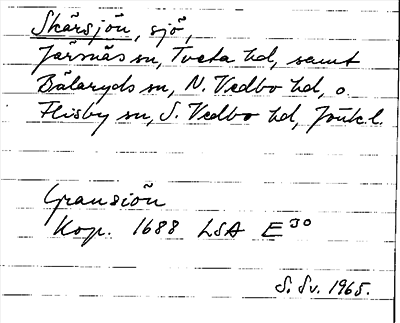 Skärsjön, sjö,
Järsnäs sn, Tveta hd, samt
Bälaryds sn, N. Vedbo hd, o.
Flisby sn, S. Vedbo hd, Jönk l.
Gransiön
Kop. 1688 LSA E³⁰
S. Sv. 1965.